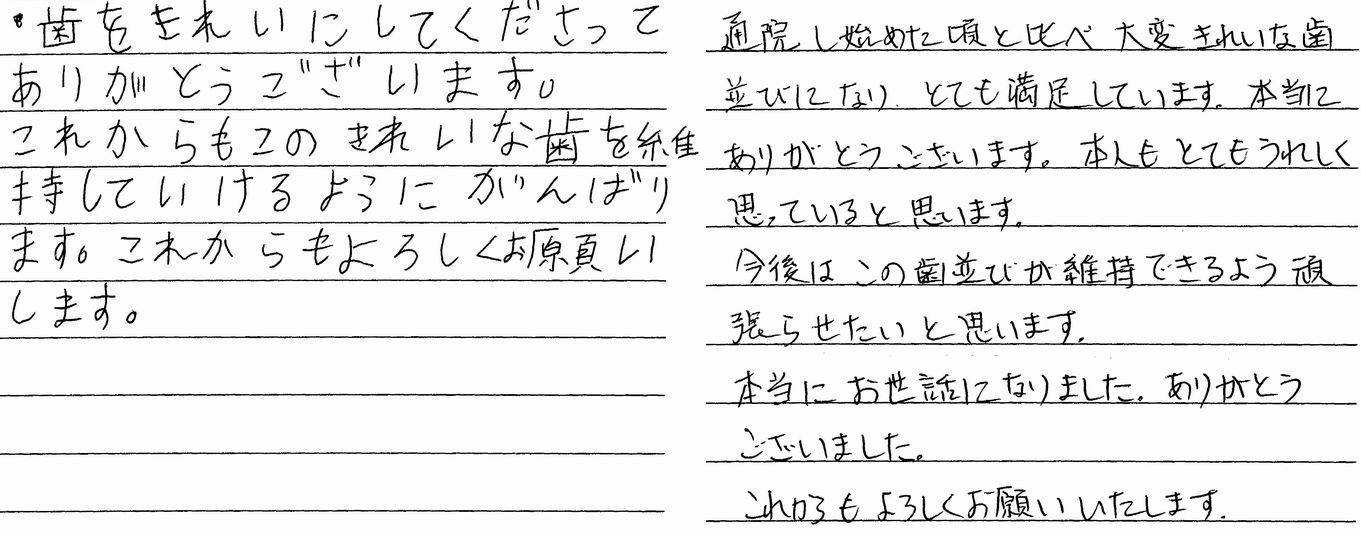 ・歯をきれいにしてくださって
ありがとうございます。
これからもこのきれいな歯を維
持していけるようにがんばり
ます。これからもよろしくお願い
します。
通院し始めた頃と比べ大変きれいな歯
並びになり、とても満足しています。本当に
ありがとうございます。本人もとてもうれしく
思っていると思います。
今後はこの歯並びが維持できるよう頑
張らせたいと思います。
本当にお世話になりました。ありがとう
ございました。
これからもよろしくお願いいたします。